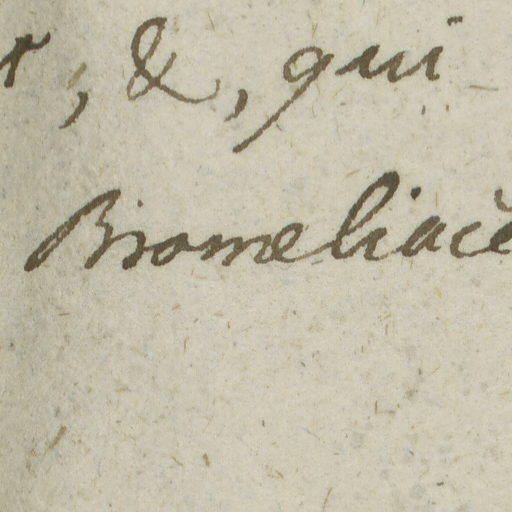 , &, qui
Bromeliacé